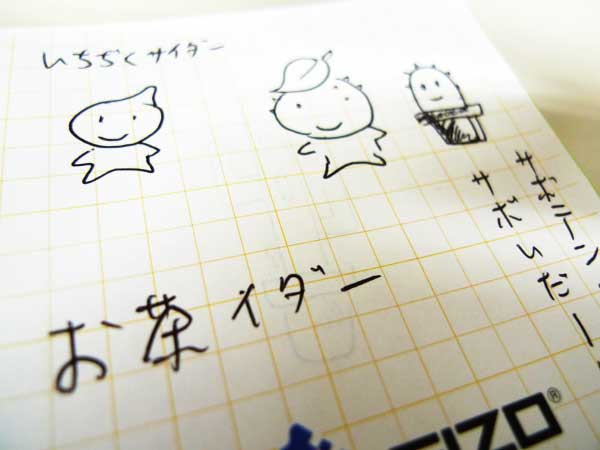 いちぢくサイダー
サボテーン
サボいだー
お茶イダー
EIZO®